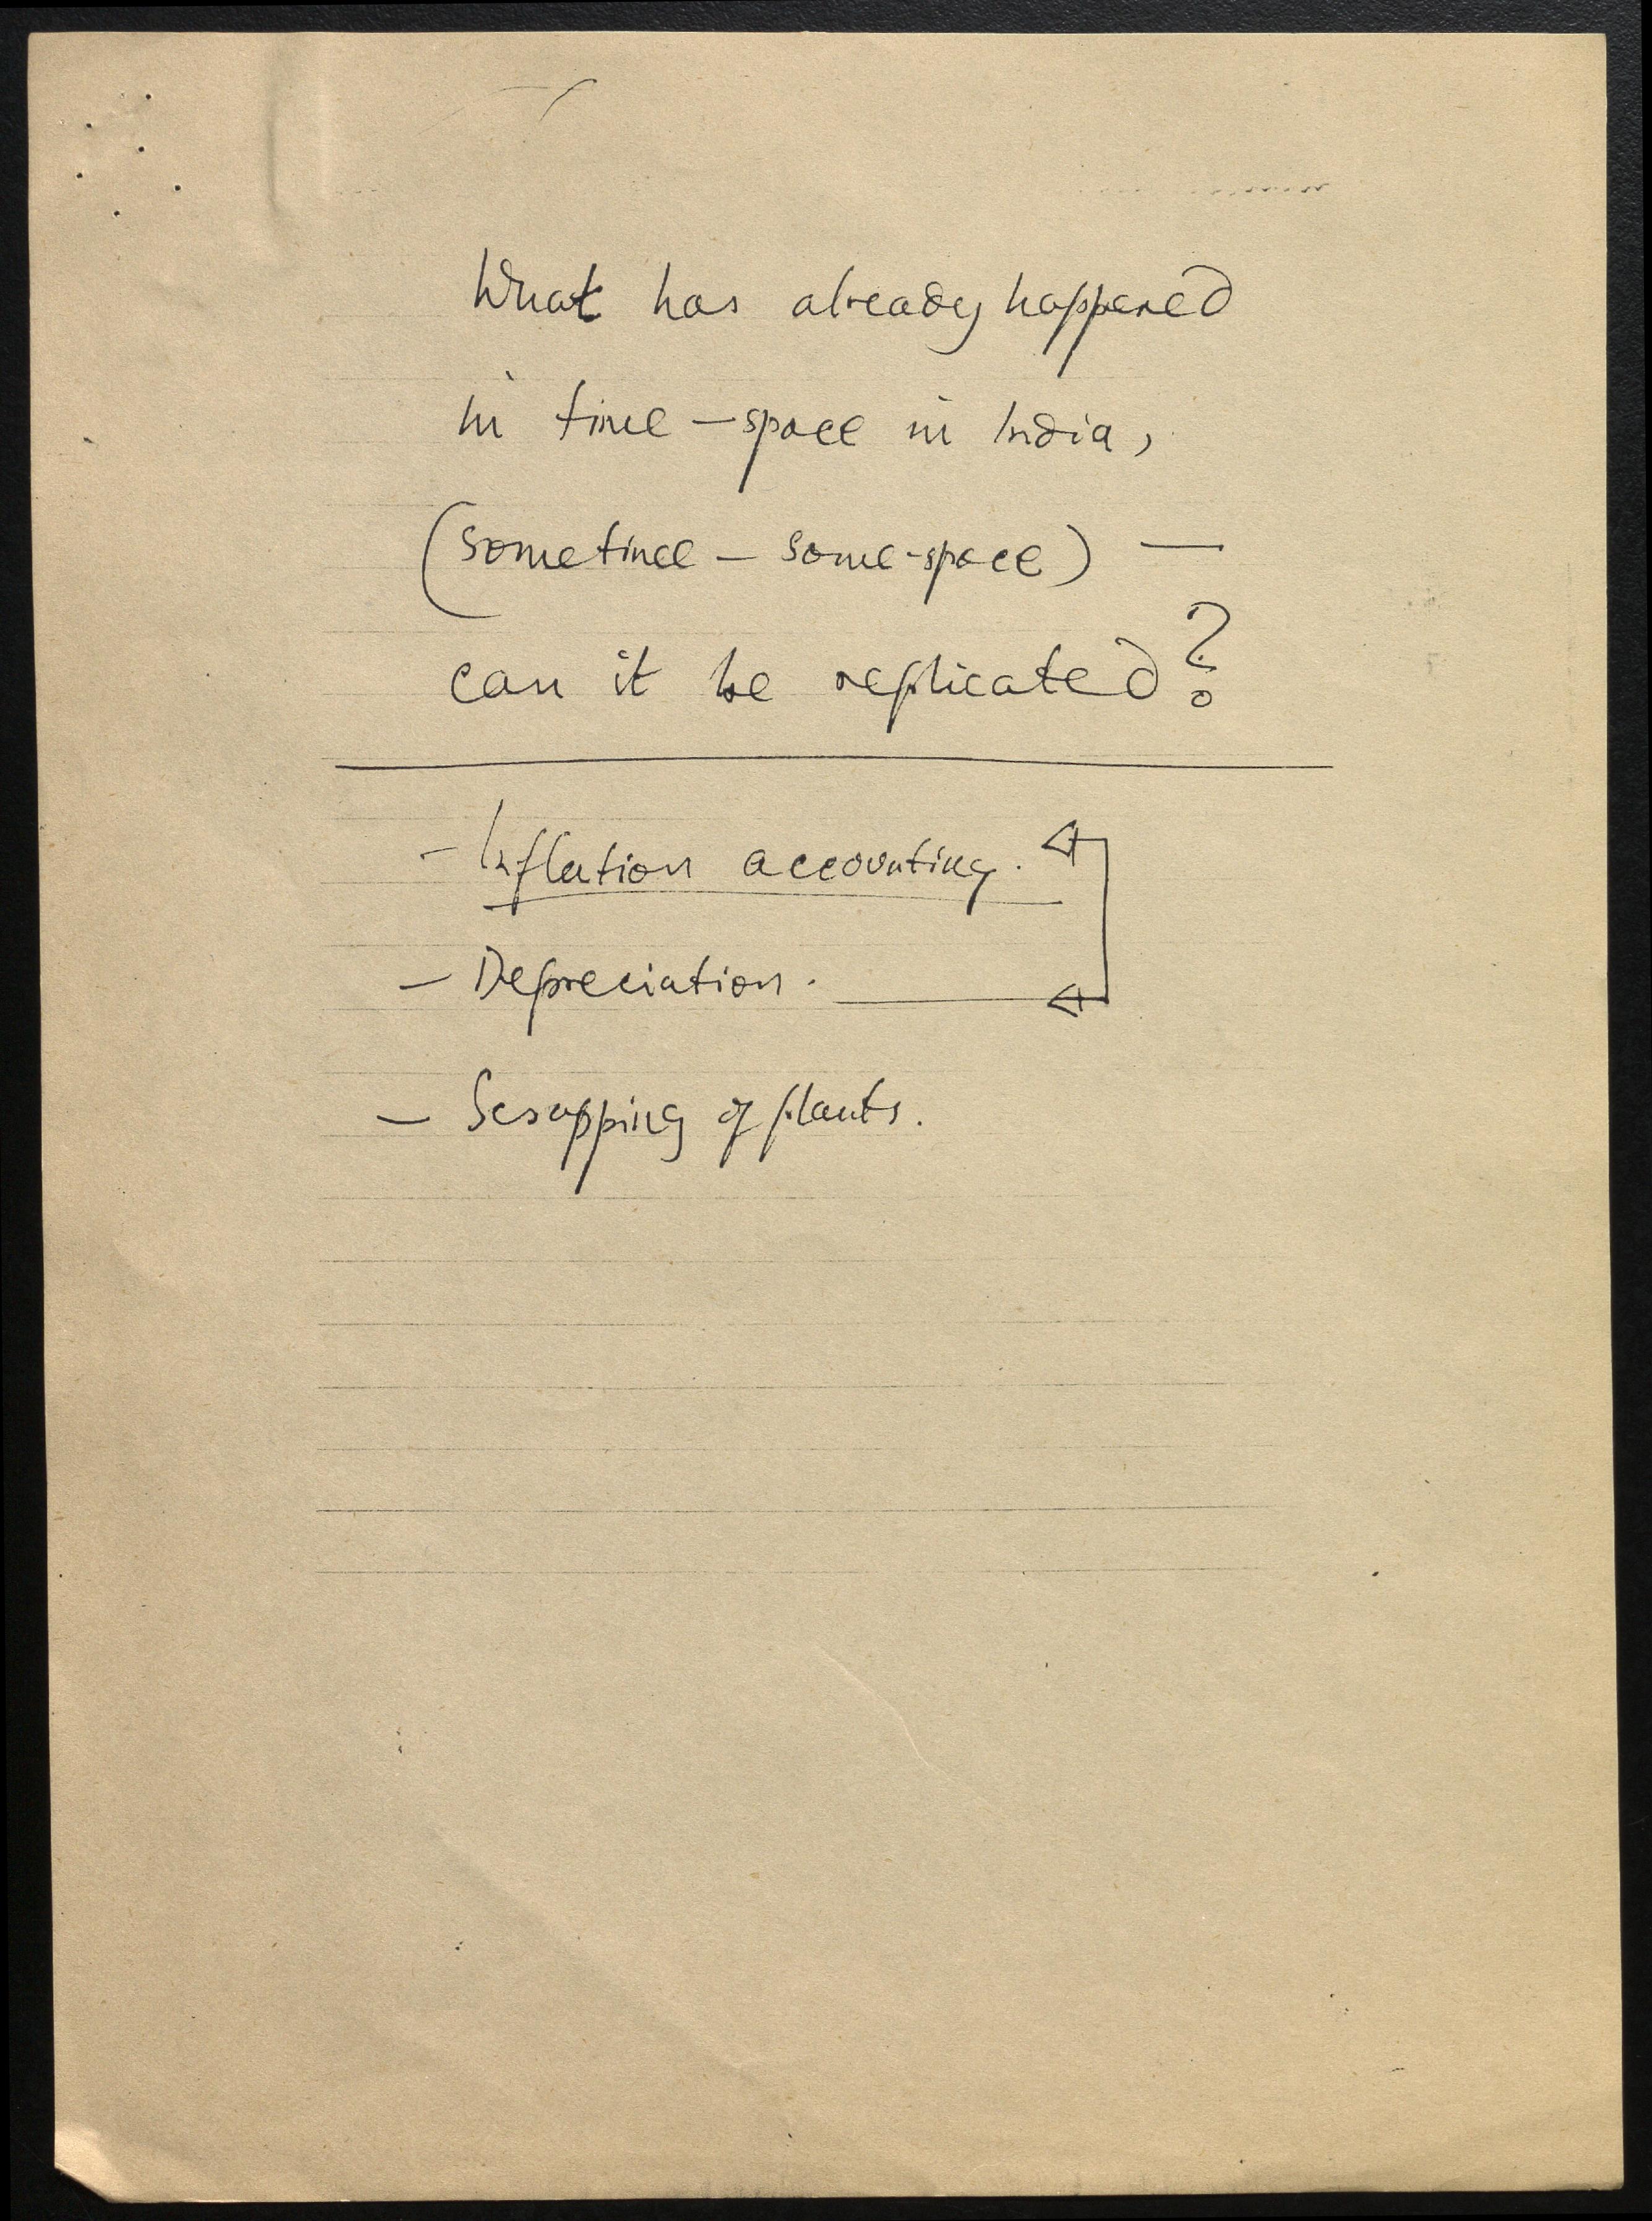 What has already happened
in time - space in India,
(sometime - some-space) —
can it be replicated?
- Inflation accounting.
- Depreciation.
- Scrapping of plants.